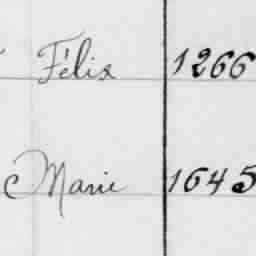 Félix 1266
Marie 1645